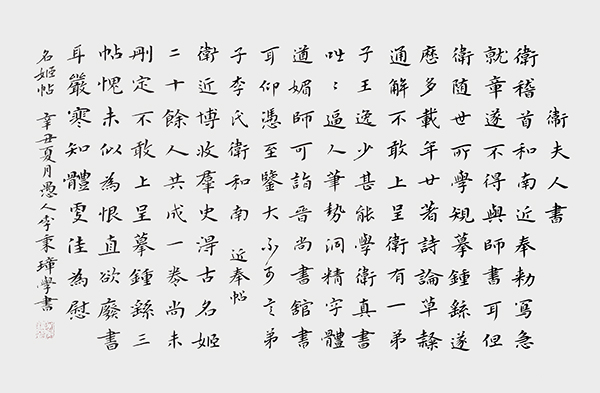 衛夫人書
衛稽首和南近奉勅寫急
就章遂不得與師書耳但
衛随世所學規摹鍾繇遂
歷多載年廿著詩論草隸
通解不敢上呈衛有一弟
子王逸少甚能學衛真書
咄〻逼人筆勢洞精字體
遒媚師可詣晉尚書舘書
耳仰憑至鑒大不可言弟
子李氏衛和南 近奉帖
衛近博收羣史得古名姬
二十餘人共成一卷尚未
刪定不敢上呈摹鍾繇三
帖愧未似為恨直欲廢書
耳嚴寒知體雯佳為慰
名姬帖 辛丑夏月愚人李秉璋學書